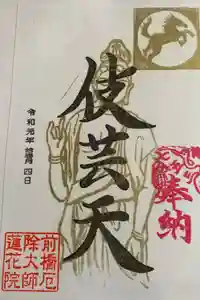 奉納
伎芸天
令和元年 月 四日
前橋厄
除大師
蓮花院